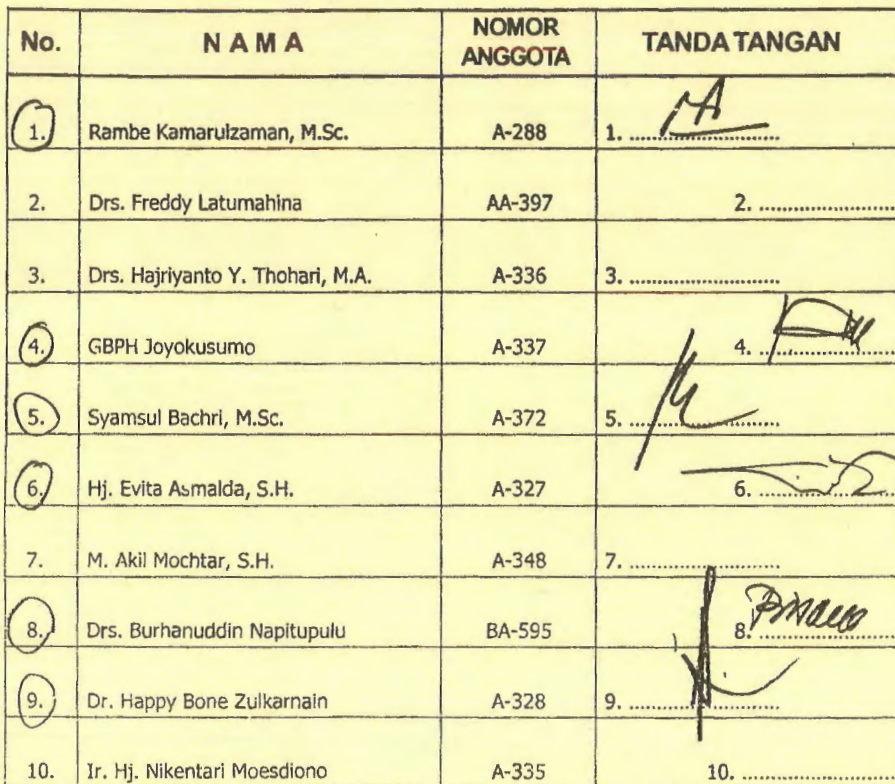 No. N A M A NOMOR ANGGOTA TANDA TANGAN
1. Rambe Kamarulzaman, M.Sc. A-288 1. ..........................
2. Drs. Freddy Latumahina AA-397 2. ..........................
3. Drs. Hajriyanto Y. Thohari, M.A. A-336 3. ..........................
4. GBPH Joyokusumo A-337 4. ..........................
5. Syamsul Bachri, M.Sc. A-372 5. ..........................
6. Hj. Evita Asmalda, S.H. A-327 6. ..........................
7. M. Akil Mochtar, S.H. A-348 7. ..........................
8. Drs. Burhanuddin Napitupulu BA-595 8. ..........................
9. Dr. Happy Bone Zulkarnain A-328 9. ..........................
10. Ir. Hj. Nikentari Moesdiono A-335 10. ..........................